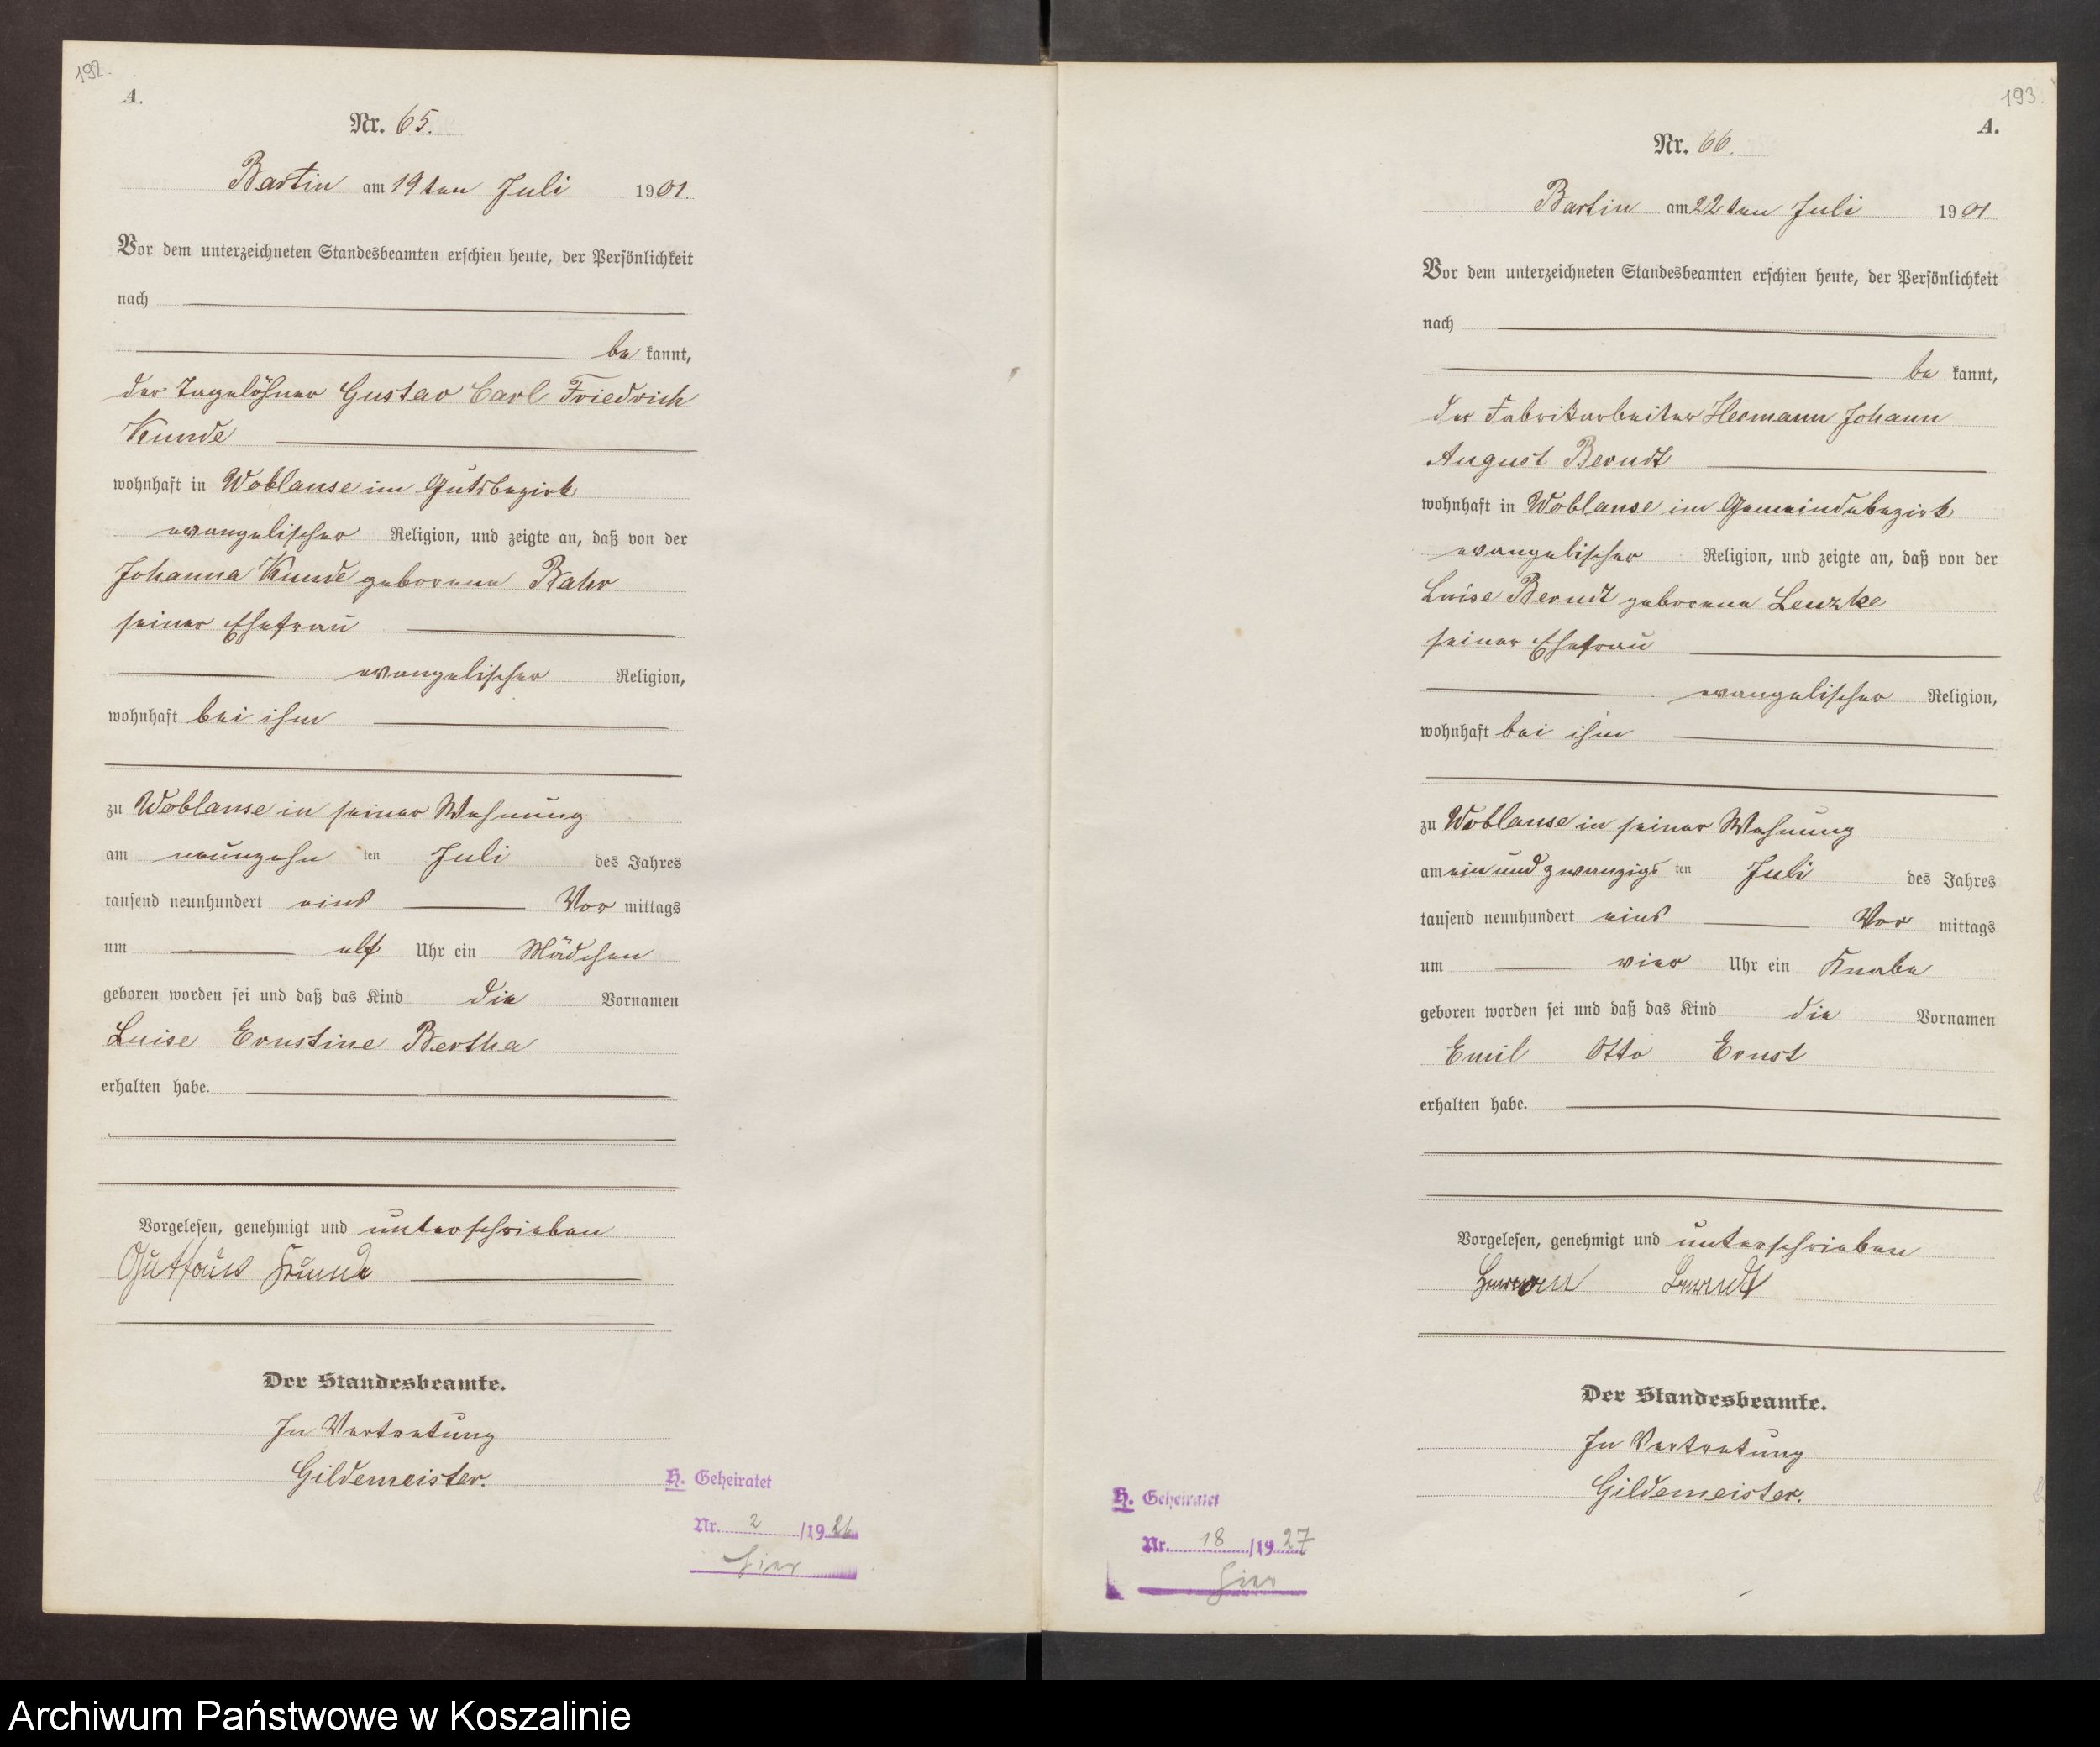 192.
A.
Nr. 65.
Bartin am 19ten Juli 1901.
Vor dem unterzeichneten Standesbeamten erschien heute, der Persönlichkeit
nach
be kannt,
der Tagelöhner Gustav Carl Friedrich
Kunde
wohnhaft in Woblanse im Gutsbezirk
evangelischer Religion, und zeigte an, daß von der
Johanna Kunde geborene Bahr
seiner Ehefrau
evangelischer Religion,
wohnhaft bei ihm
zu Woblanse in seiner Wohnung
am neunzehn ten Juli des Jahres
tausend neunhundert eins Vor mittags
um elf Uhr ein Mädchen
geboren worden sei und daß das Kind die Vornamen
Luise Ernstine Bertha
erhalten habe.
Vorgelesen, genehmigt und unterschrieben
Kunde
Der Standesbeamte.
In Vertretung
Gildemeister.
H. Geheiratet
Nr. 2 /19
hier
193.
A.
Nr. 66.
Bartin am 22ten Juli 1901
Vor dem unterzeichneten Standesbeamten erschien heute, der Persönlichkeit
nach
be kannt,
der Fabrikarbeiter Hermann Johann
August Berndt
wohnhaft in Woblanse im Gemeindebezirk
evangelischer Religion, und zeigte an, daß von der
Luise Berndt geborene Lenzke
seiner Ehefrau
evangelischer Religion,
wohnhaft bei ihm
zu Woblanse in seiner Wohnung
am ein und zwanzigs ten Juli des Jahres
tausend neunhundert eins Vor mittags
um vier Uhr ein Knabe
geboren worden sei und daß das Kind die Vornamen
Emil Otto Ernst
erhalten habe.
Vorgelesen, genehmigt und unterschrieben
Berndt
Der Standesbeamte.
In Vertretung
Gildemeister.
H. Geheiratet
Nr. 18 /1927
hier
Archiwum Państwowe w Koszalinie